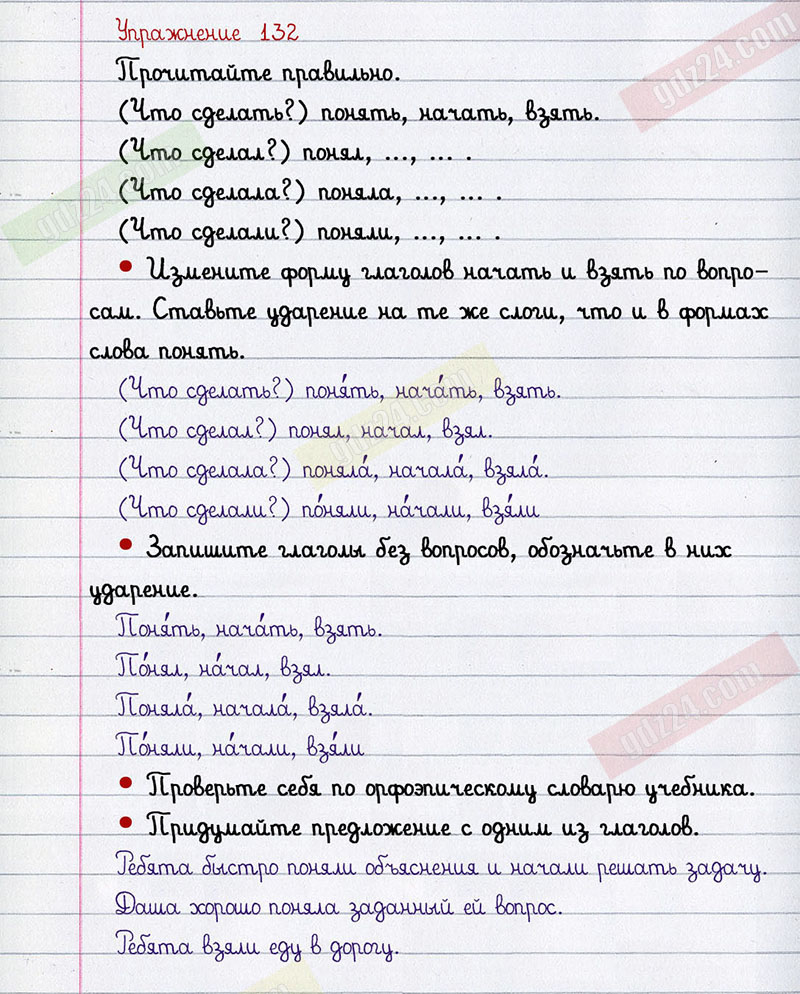 Упражнение 132
Прочитайте правильно.
(Что сделать?) понять, начать, взять.
(Что сделал?) понял, ..., ... .
(Что сделала?) поняла, ..., ... .
(Что сделали?) поняли, ..., ... .
• Измените форму глаголов начать и взять по вопро-
сам. Ставьте ударение на те же слоги, что и в формах
слова понять.
(Что сделать?) поня́ть, нача́ть, взять.
(Что сделал?) понял, начал, взял.
(Что сделала?) поняла́, начала́, взяла́.
(Что сделали?) по́няли, на́чали, взя́ли
• Запишите глаголы без вопросов, обозначьте в них
ударение.
Поня́ть, нача́ть, взять.
По́нял, на́чал, взял.
Поняла́, начала́, взяла́.
По́няли, на́чали, взя́ли
• Проверьте себя по орфоэпическому словарю учебника.
• Придумайте предложение с одним из глаголов.
Ребята быстро поняли объяснения и начали решать задачу.
Даша хорошо поняла заданный ей вопрос.
Ребята взяли еду в дорогу.
gdz24.com
gdz24.com
gdz24.com
gdz24.com